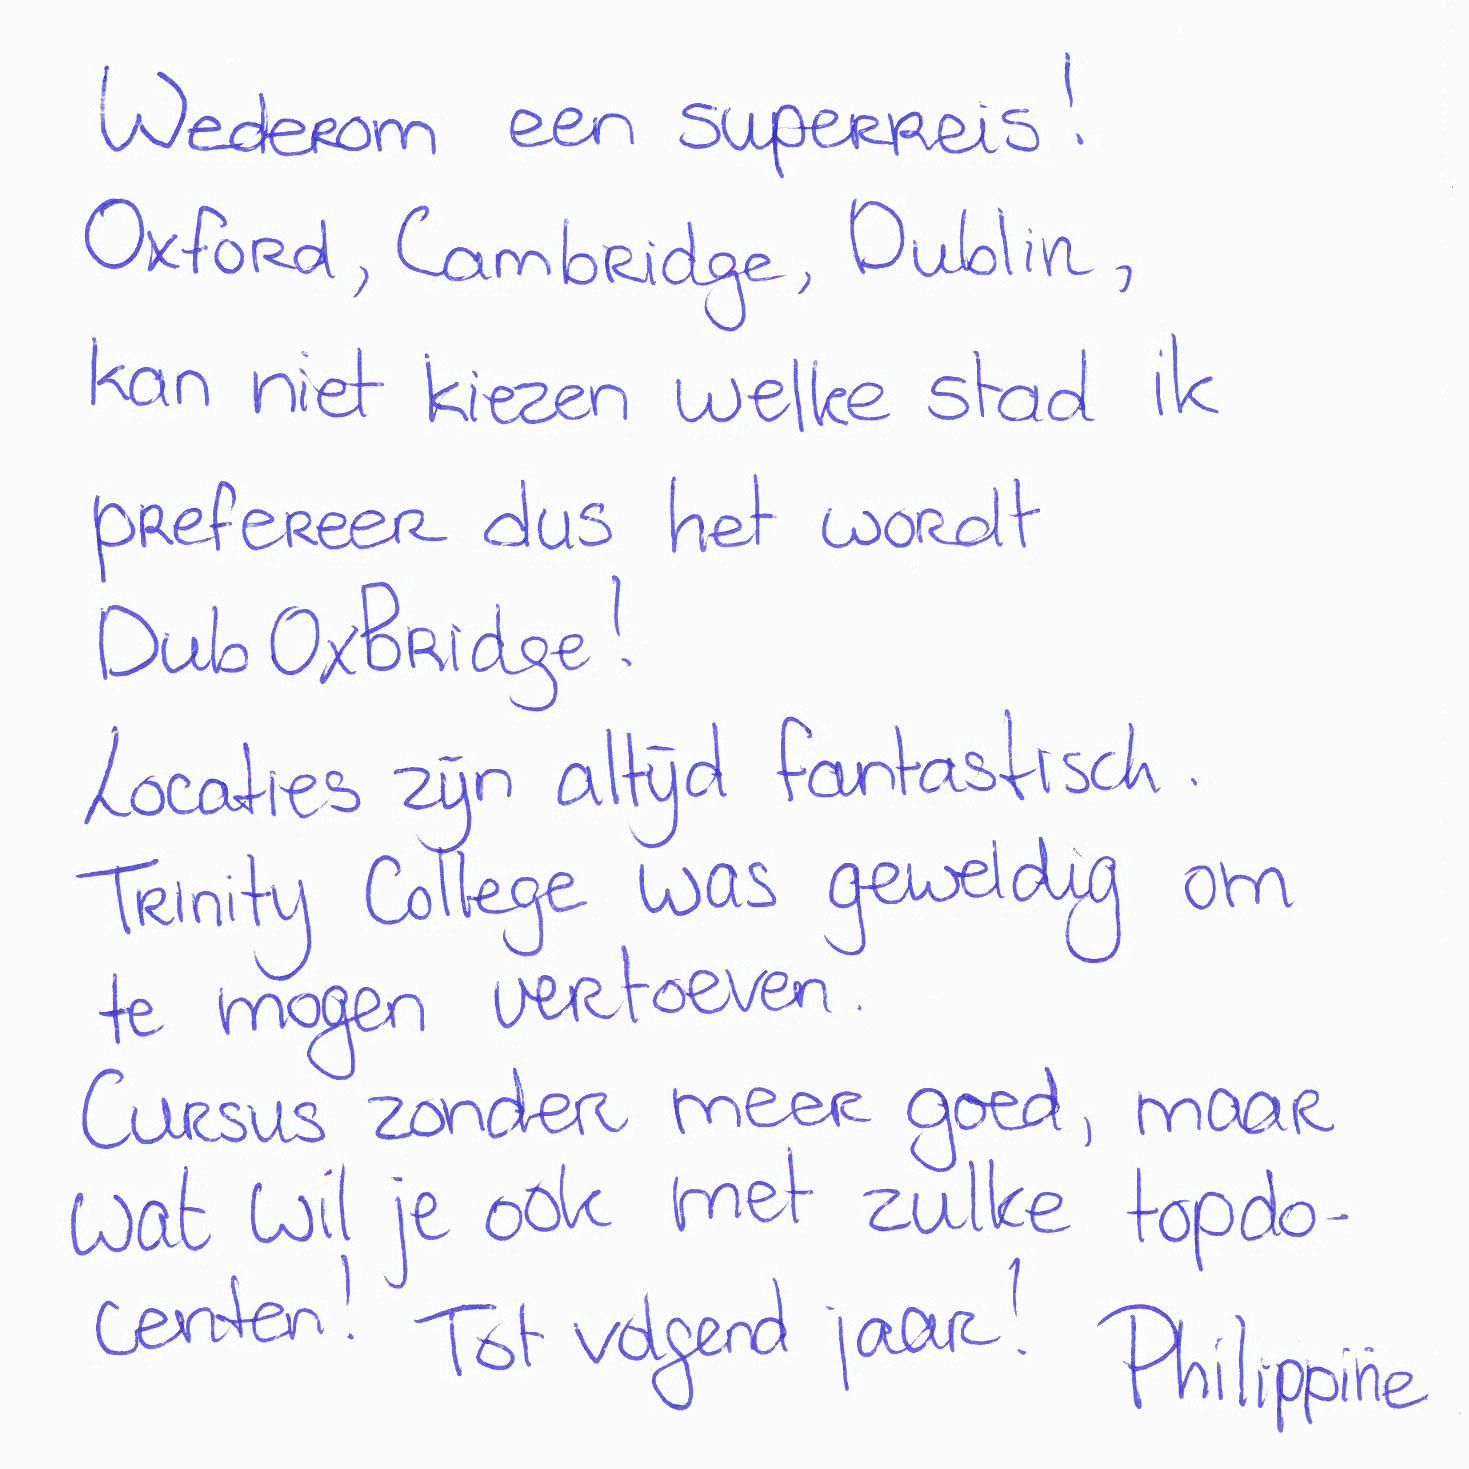 Wederom een superreis!
Oxford, Cambridge, Dublin,
kan niet kiezen welke stad ik
prefereer dus het wordt
DubOxBridge!
Locaties zijn altijd fantastisch.
Trinity College was geweldig om
te mogen vertoeven.
Cursus zonder meer goed, maar
wat wil je ook met zulke topdo-
centen! Tot volgend jaar! Philippine